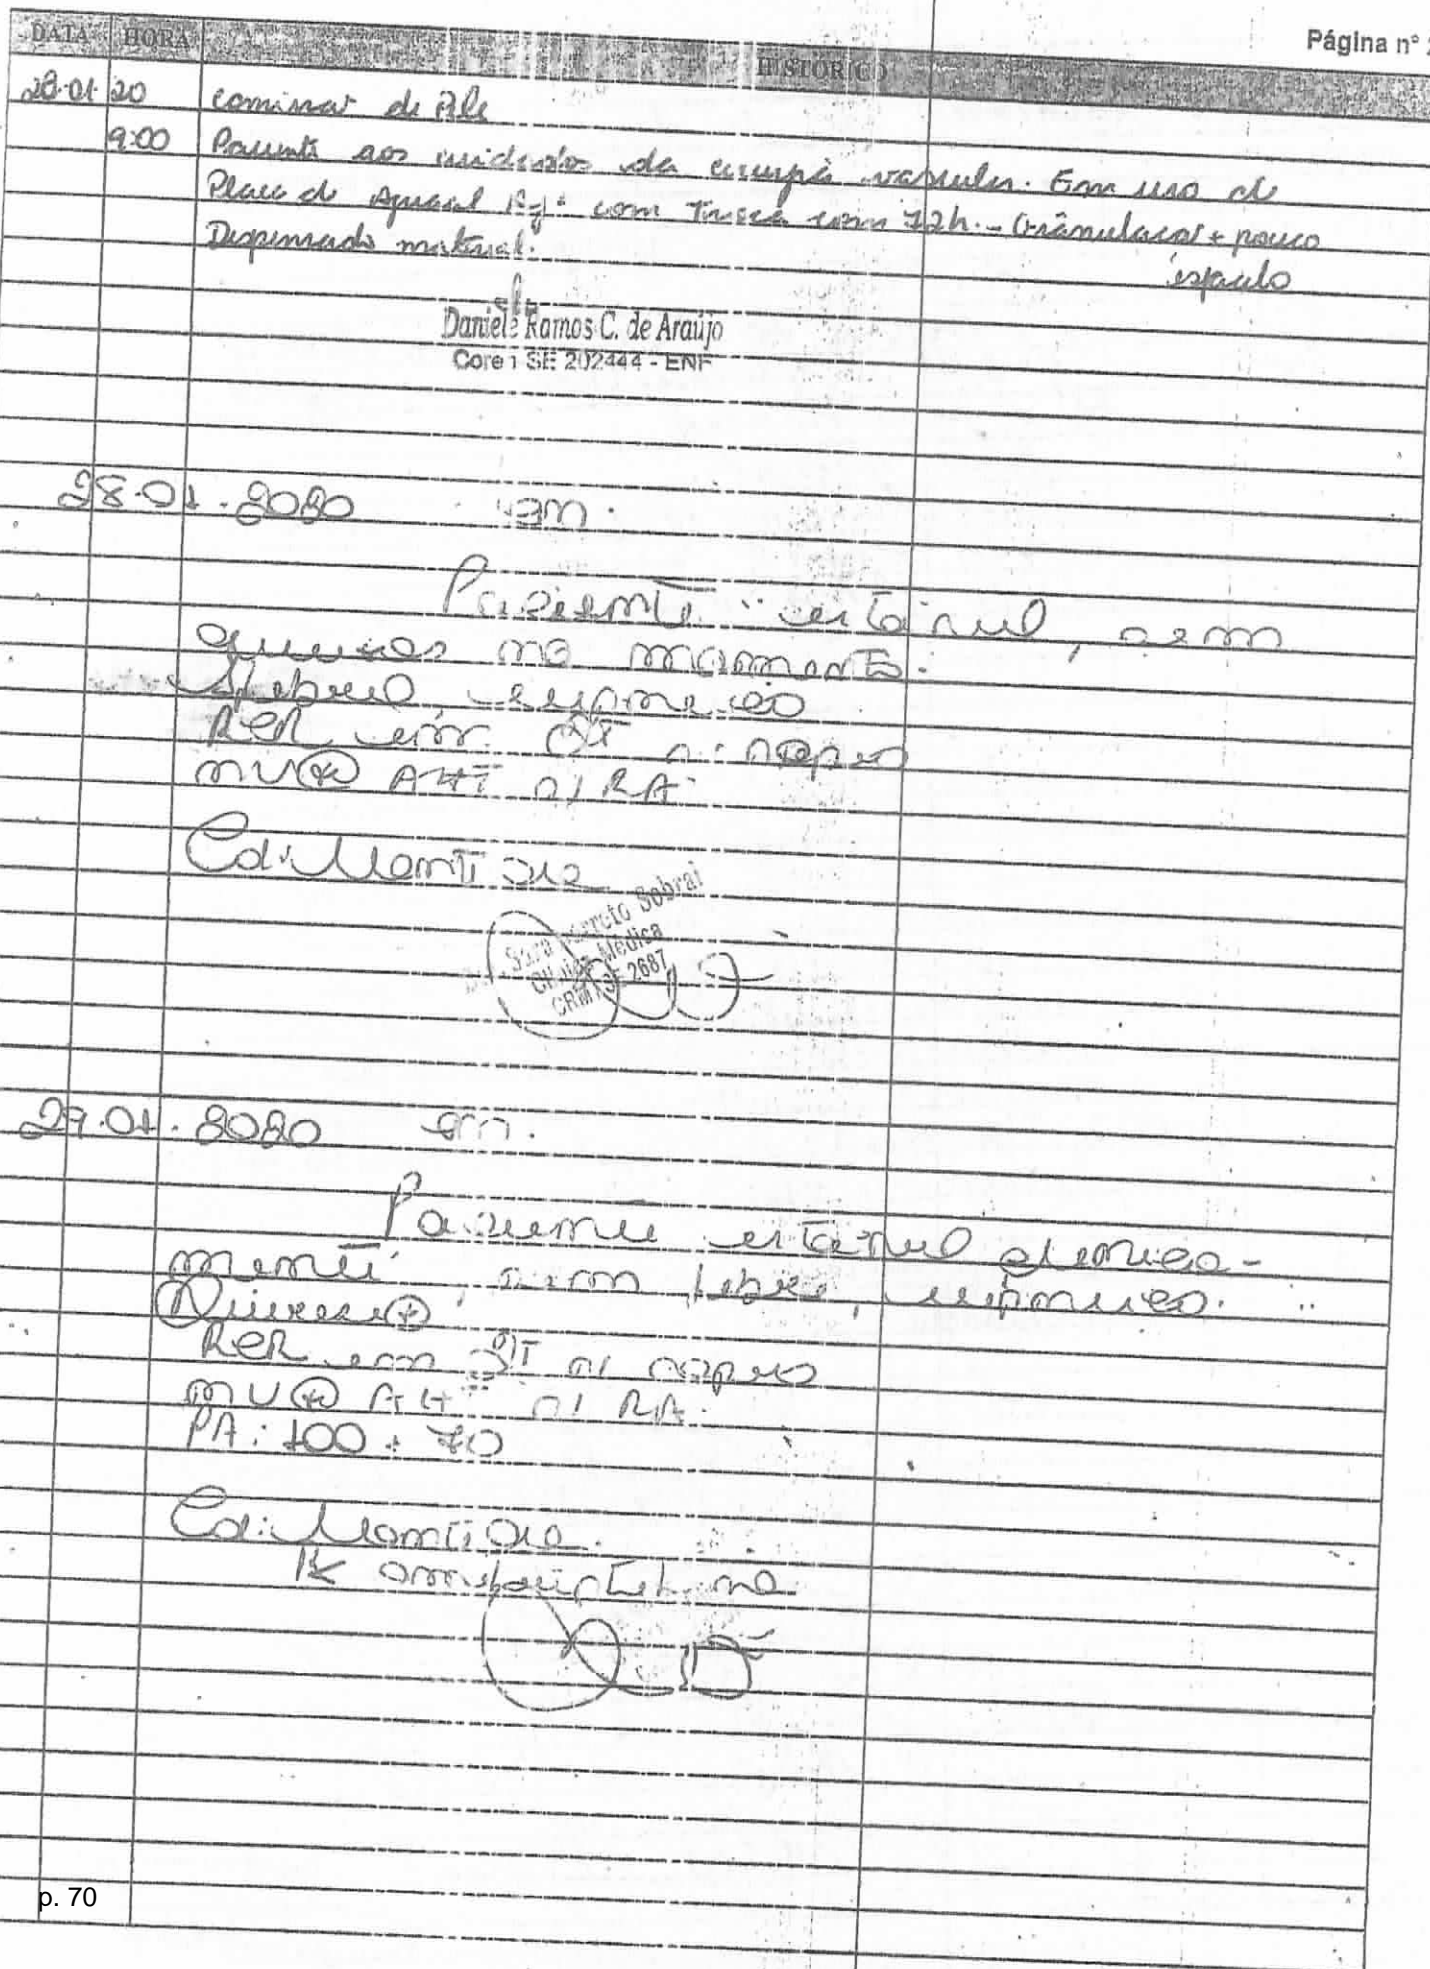 Página nº
DATA HORA HISTÓRICO
28.01.20 comissão de Pele
9:00 Paciente aos cuidados da cirurgia vascular. Em uso de
Placa de Aquacel Ag+ com troca com 72h. - Granulação + pouco
esfacelo
Dispensado material.
Daniele Ramos C. de Araújo
Coren SE 202444 - ENF
28.01.2020 cm.
Paciente estável, sem
queixas no momento.
Afebril, eupneico
RCR em 2T s/ sopro
MV⊕ AHT s/ RA.
Cd: Mantida
Sara Sobral
Clínica Médica
CRM SE 2687
29.01.2020 cm.
Paciente estável clinica-
mente, sem febre, eupneico.
Diurese⊕
RCR em 2T s/ sopro
MV⊕ AHT s/ RA.
PA: 100 x 70
Cd: Mantida.
p. 70